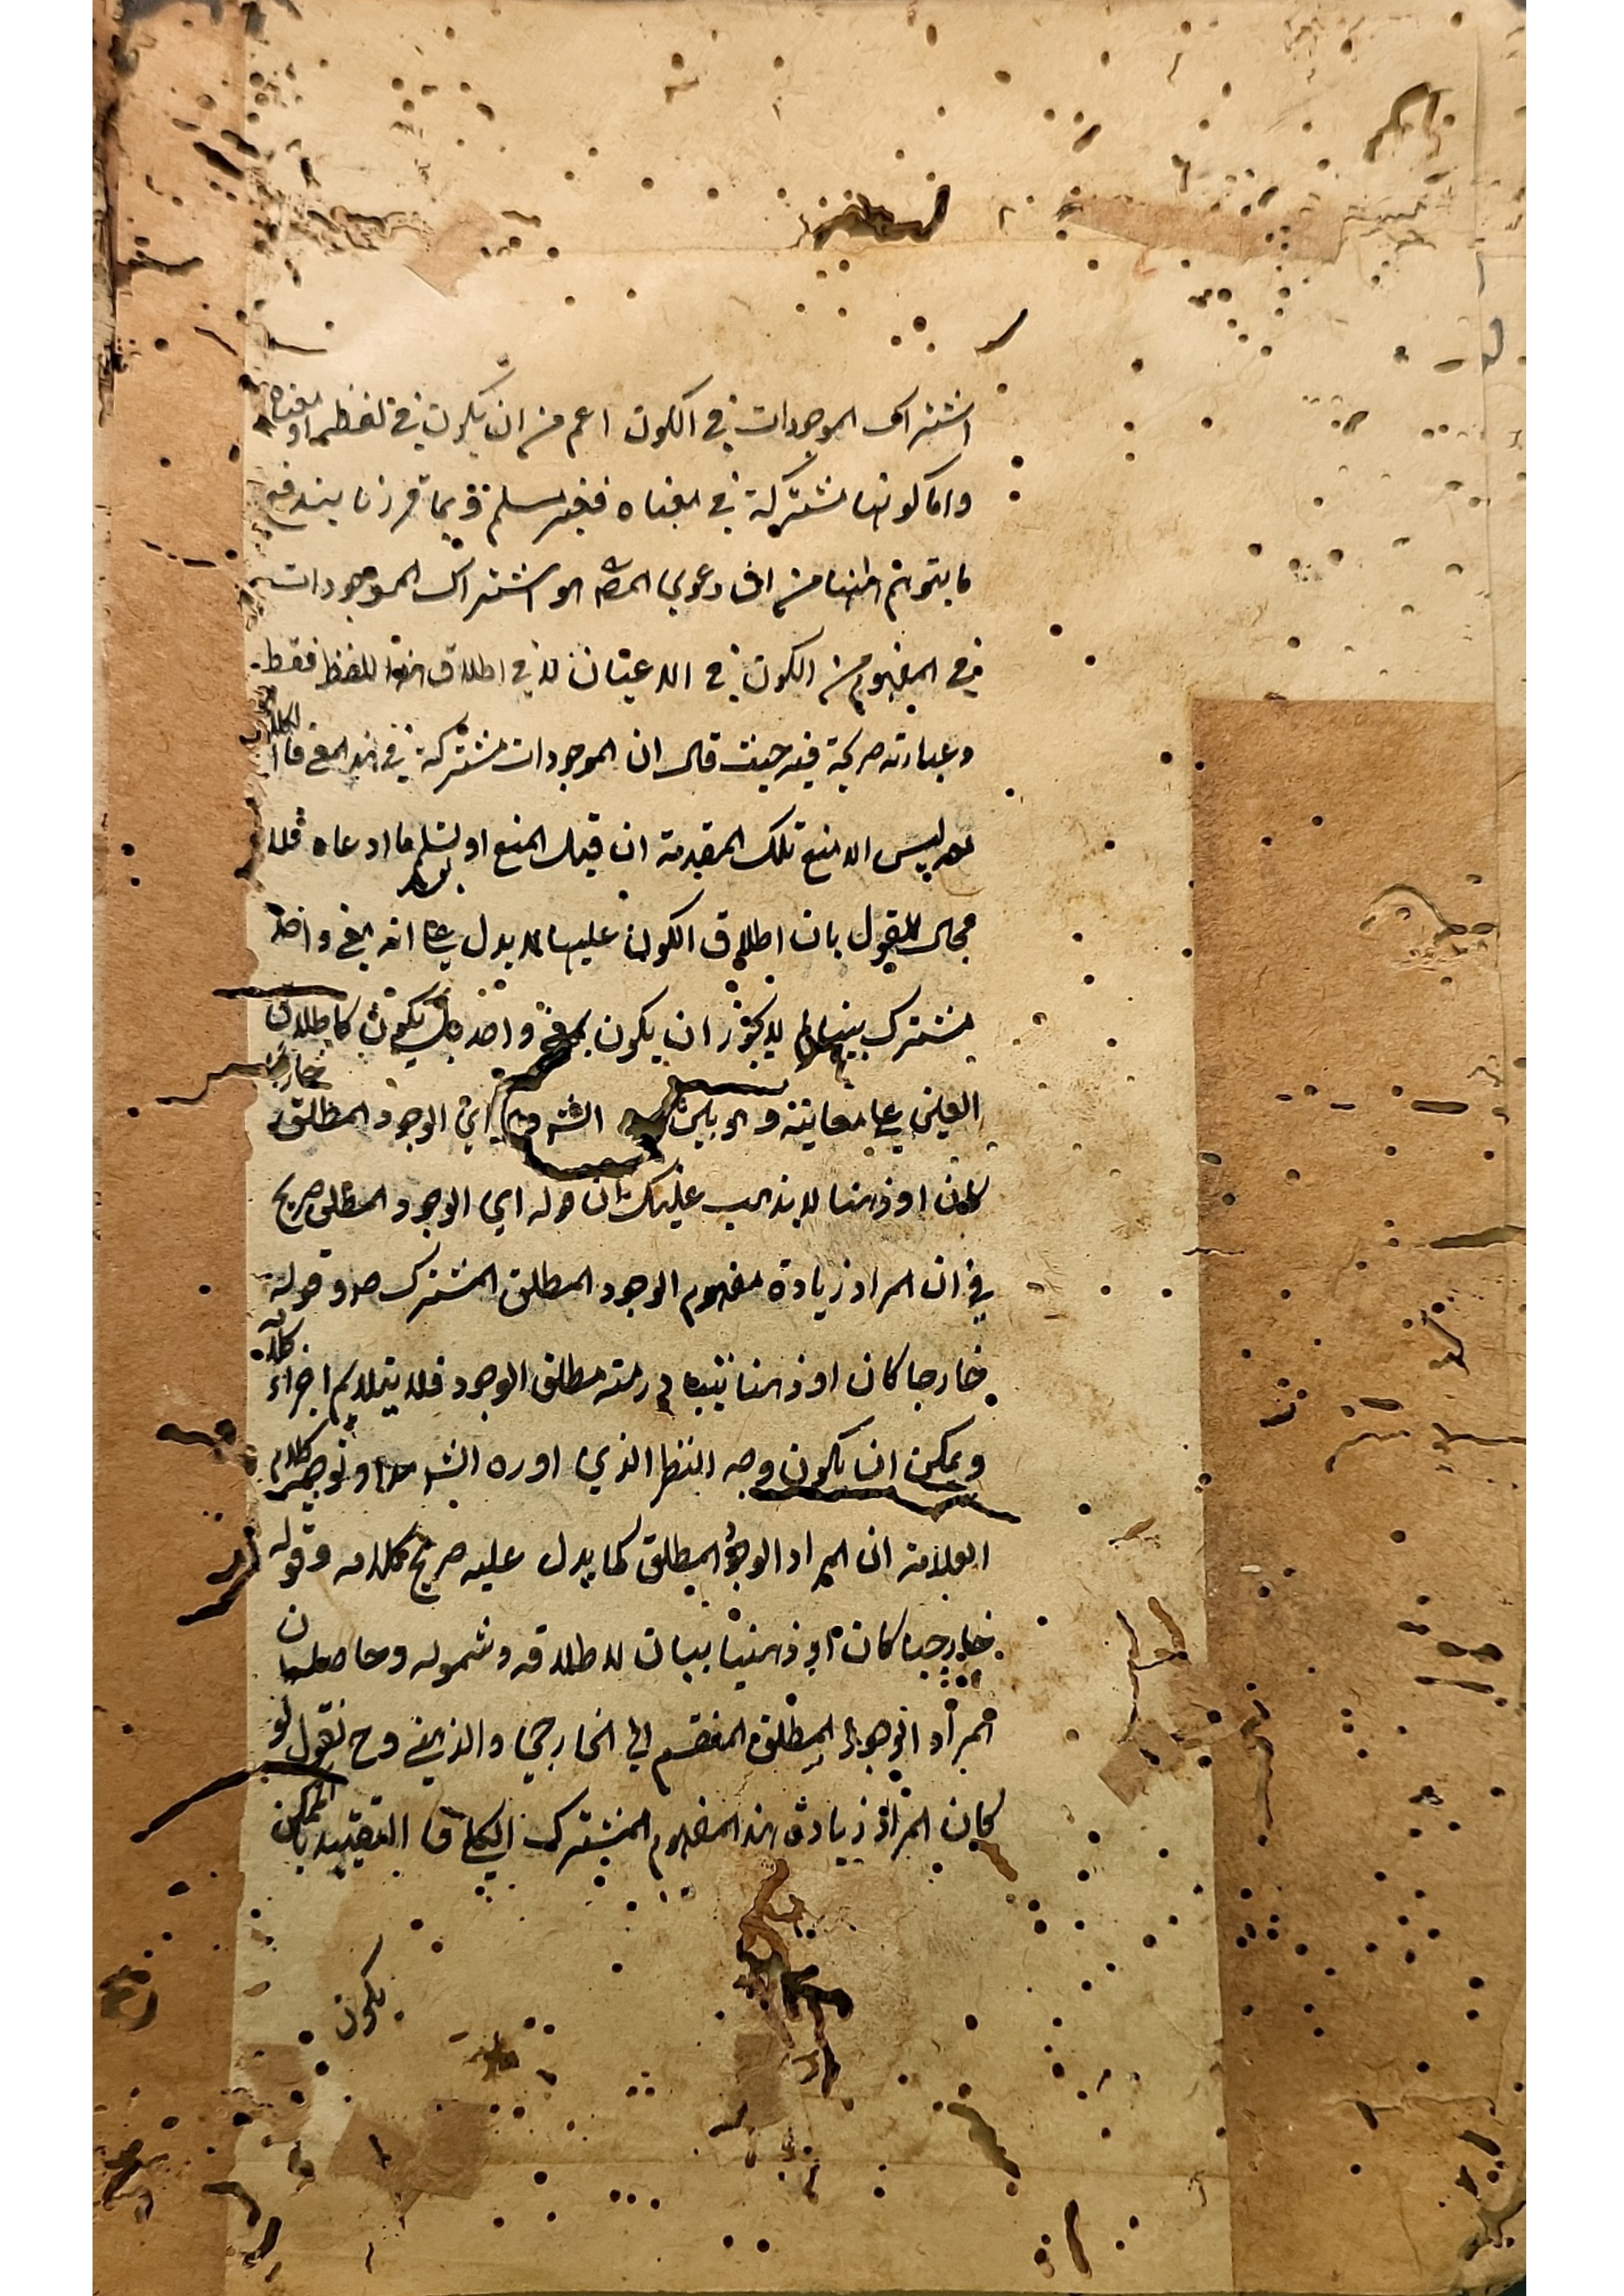 اشتراك الموجودات في الكون اعم من ان يكون في لفظه او معناه
واما كونها مشتركة في معناه فغير مسلم وبما قررنا يندفع
ما يتوهم ههنا من ان دعوي المصه هو اشتراك الموجودات
في المفهوم من الكون في الاعيان لا في اطلاق هذا اللفظ فقط
وعبارته صريحة فيه حيث قال ان الموجودات مشتركة في هذا المعنى
ليس الا منع تلك المقدمة ان قبل المنع او تسلم ما ادعاه فلا
مجال للقول بان اطلاق الكون عليها لا يدل على انه بمعنى واحد
مشترك بينها لم لا يجوز ان يكون بمعنى واحد بل يكون كاطلاق
العين على معانيه الش اي الوجود المطلق خارجيا
كان او ذهنا لا يذهب عليك ان قوله اي الوجود المطلق صريح
في ان المراد زيادة مفهوم الوجود المطلق المشترك وقوله
خارجا كان او ذهنا مطلق الوجود فلا يتلايم اجزاء كلامه
ويمكن ان يكون وجه النظر الذي اوره الش توجيه كلام
العلامة ان المراد الوجود المطلق كما يدل عليه صريح كلامه وقوله
خارجيا كان او ذهنيا بيان لاطلاقه وشموله وحاصله ان
المراد الوجود المطلق المنقسم الى الخارجي والذهني وح نقول لو
كان المراد زيادة هذا المفهوم المشترك الكلي فالتقييد بالممكن
يكون